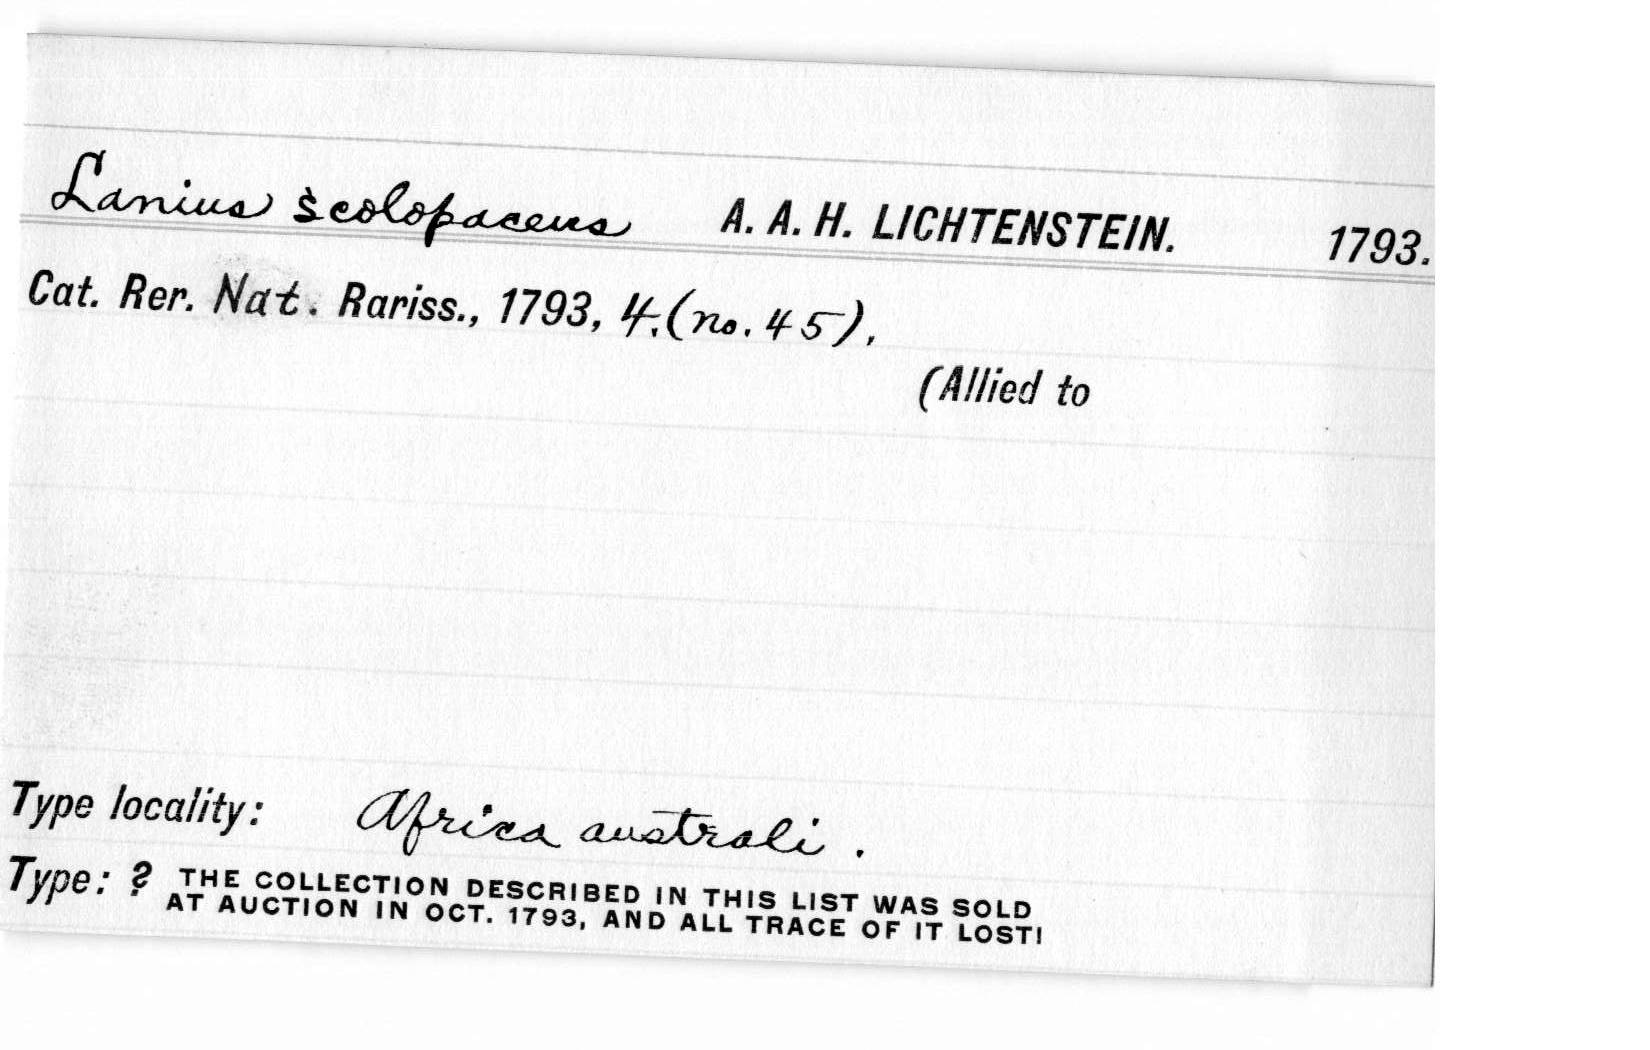 Lanius scolopaceus A. A. H. LICHTENSTEIN. 1793.
Cat. Rer. Nat. Rariss., 1793, 4.(no. 45).
(Allied to
Type locality: Africa australi.
Type: ? THE COLLECTION DESCRIBED IN THIS LIST WAS SOLD
AT AUCTION IN OCT. 1793, AND ALL TRACE OF IT LOST!